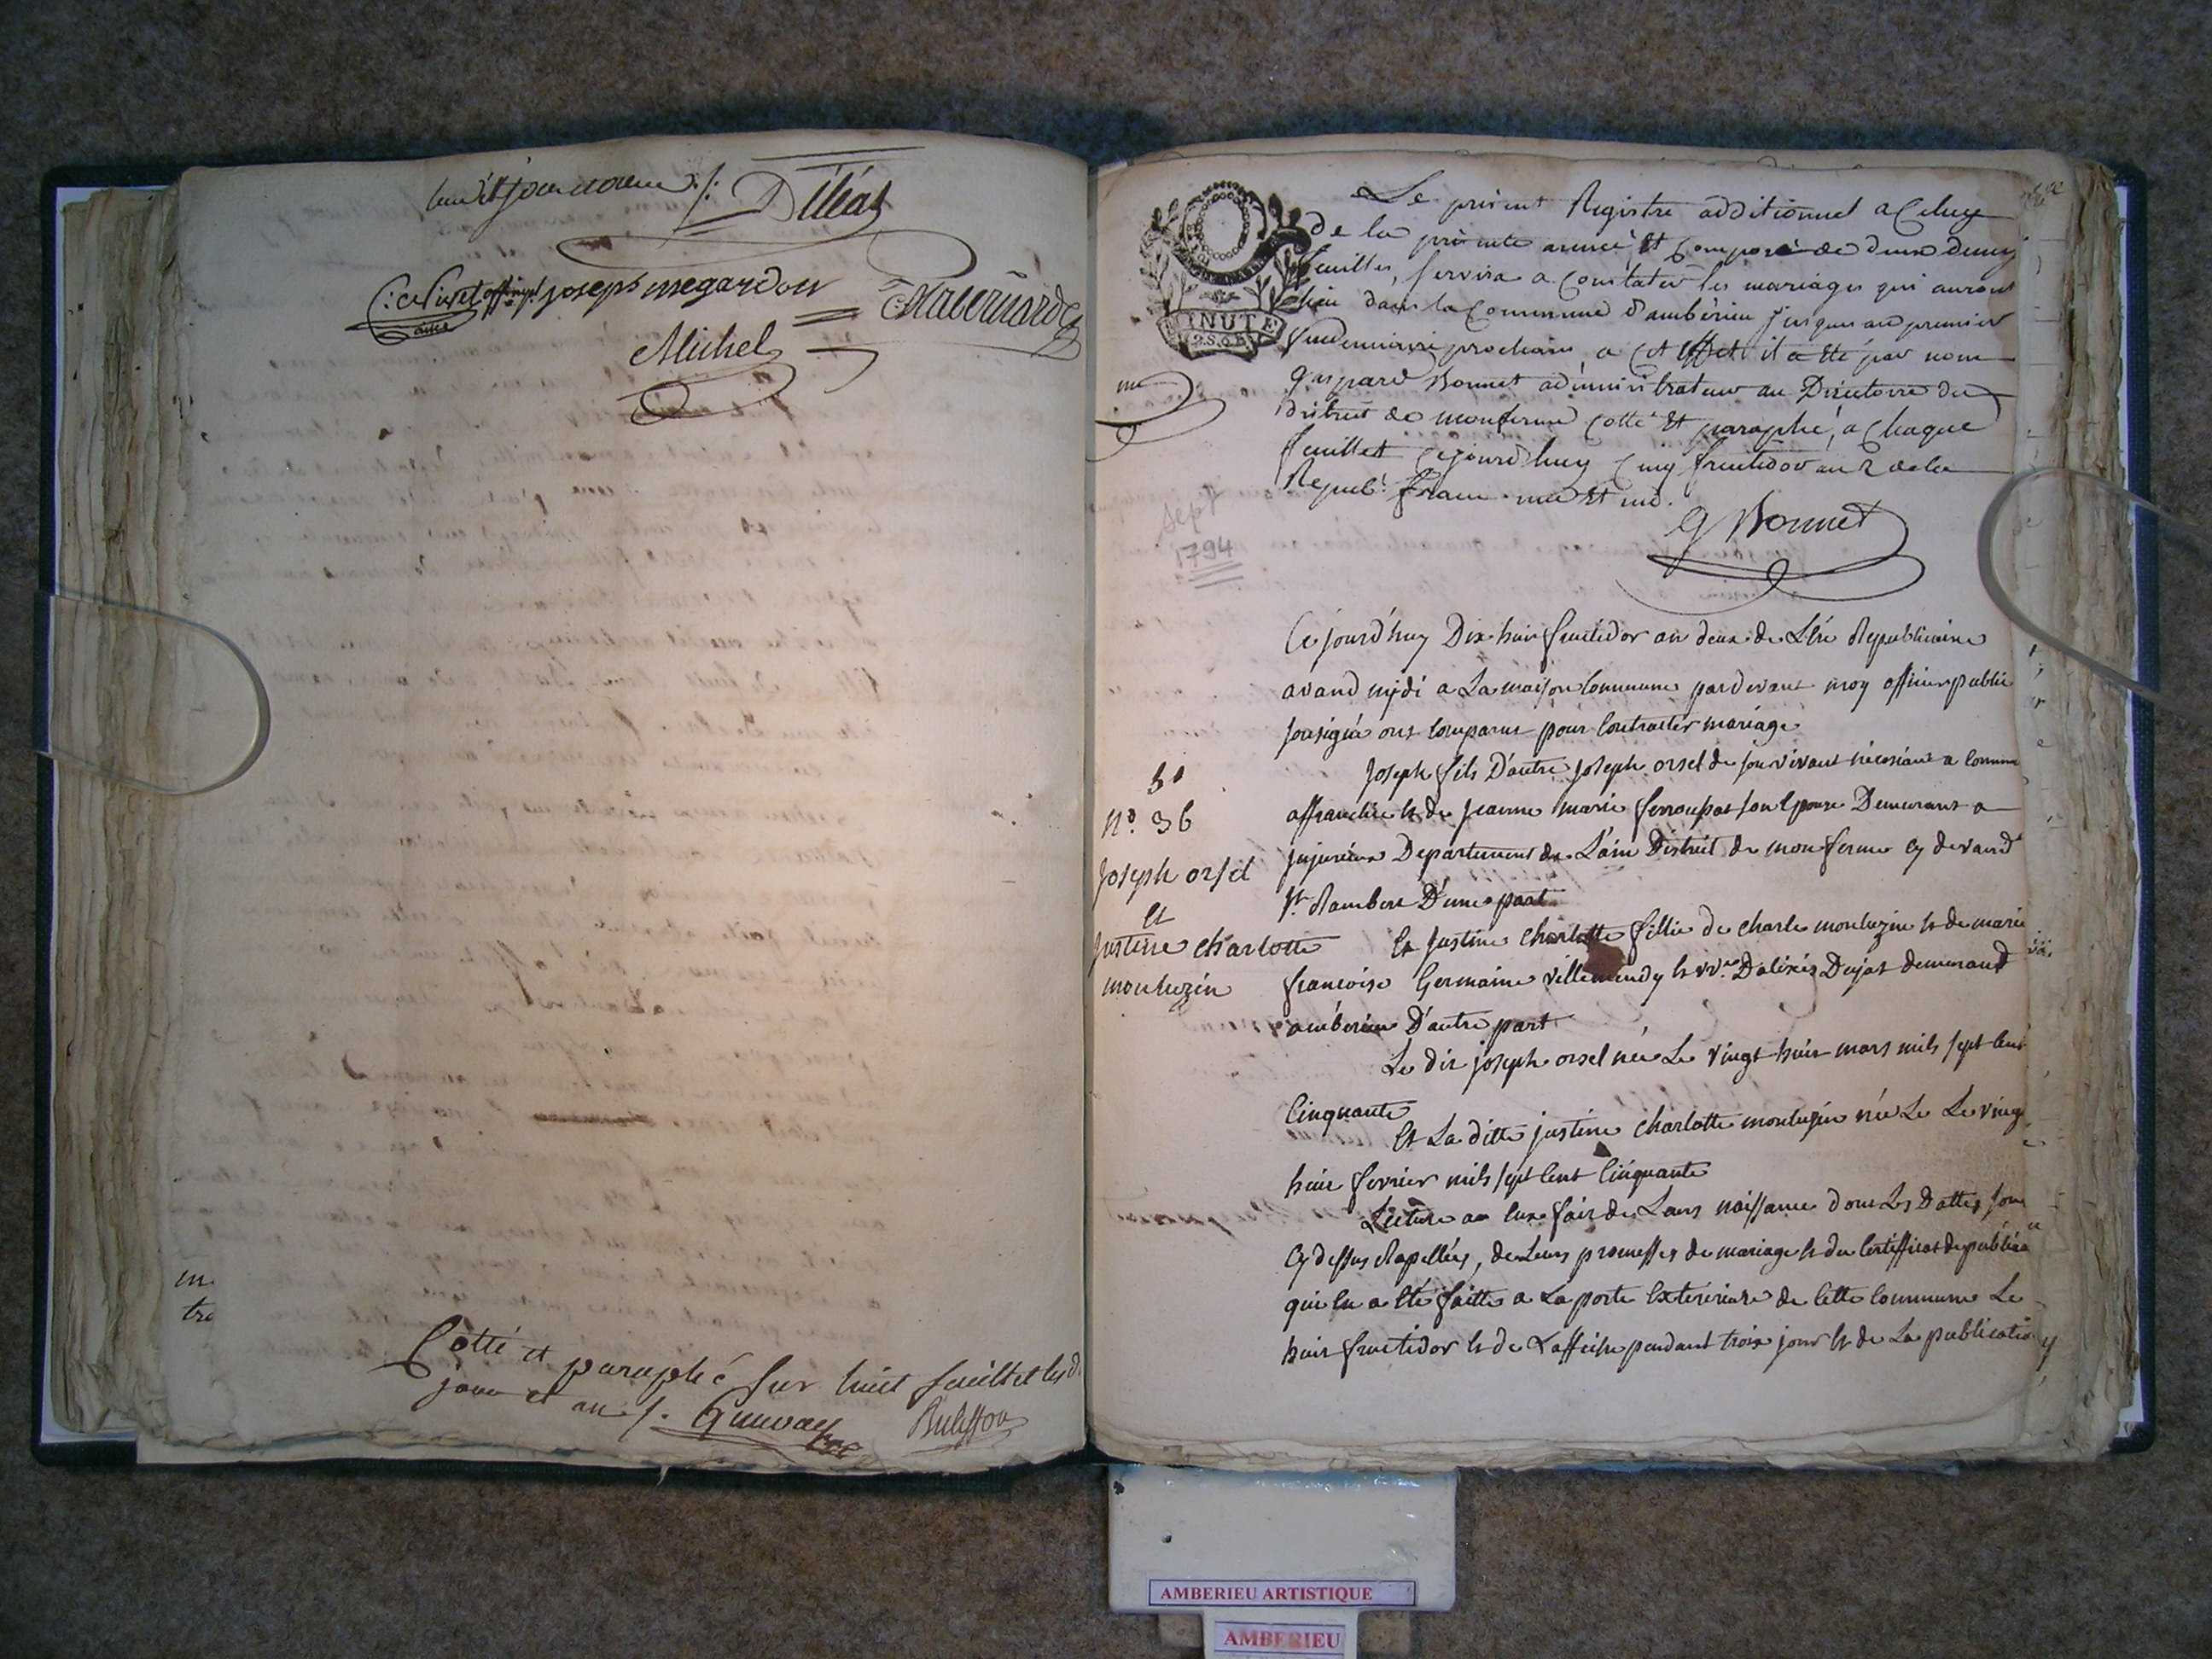 lesdit jour et an ./.
Dilléas
C: Civet off. p.
joseph megardon
Chabernard
Michel
Cotté et paraphé sur huit feuillet les d
jour et an ./.
Buisson
Le présent Registre additionnel a Celuy
de la présente année Et Composé de deux demy
feuilles, Servira a Constater les mariages qui auront
Lieu dans la Commune d'ambérieu jusques au premier
Vendemiaire prochain, a Cet Effet il a été par nous
gaspard Bonnet administrateur au Directoire du
district de monferme Cotté Et paraphé, a Chaque
feuillet Cejourd'huy Cinq fructidor an 2 de la
Republ. franc. une Et ind.
MINUTE
G Bonnet
sept
1794
Ce jourd'huy Dix huit fructidor an deux de L'Ere Republicaine
avand mydi a La maison Commune pardevant moy officier public
sousigné ons comparus pour Contracter mariage
Joseph fils D'autre Joseph orsel de son vivant nécosiant a Commune
affranchie & de Jeanne marie ferroupat son Epouse Demeurant a
jujurieux Departement de L'ain District de monferme cy devand
St. Rambert D'une part
Et Justine Charlotte fillie de charle monluzin & de marie
francoise Germaine villemendy & vve. D'alixis Dujat demeurand
ambérieu D'autre part
Le dit joseph orsel née Le vingt huit mars mils sept Cent
Cinquante
Et La ditte justine charlotte monluzin née Le Le ving
huit fevrier mils sept Cent Cinquante
Lecture a eux fait de Leurs naissance dont Les Dattes sont
Cy dessus Rapellées, de Leurs promesses de mariage & du Certifficat de publica
qui en a été faitte a La porte Exterieure de Cette Commune Le
huit fructidor & de L'affiche pendant trois jour & de La publication
51
N°. 36
Joseph orsel
Et
Justine charlotte
monluzin
AMBERIEU ARTISTIQUE
AMBERIEU